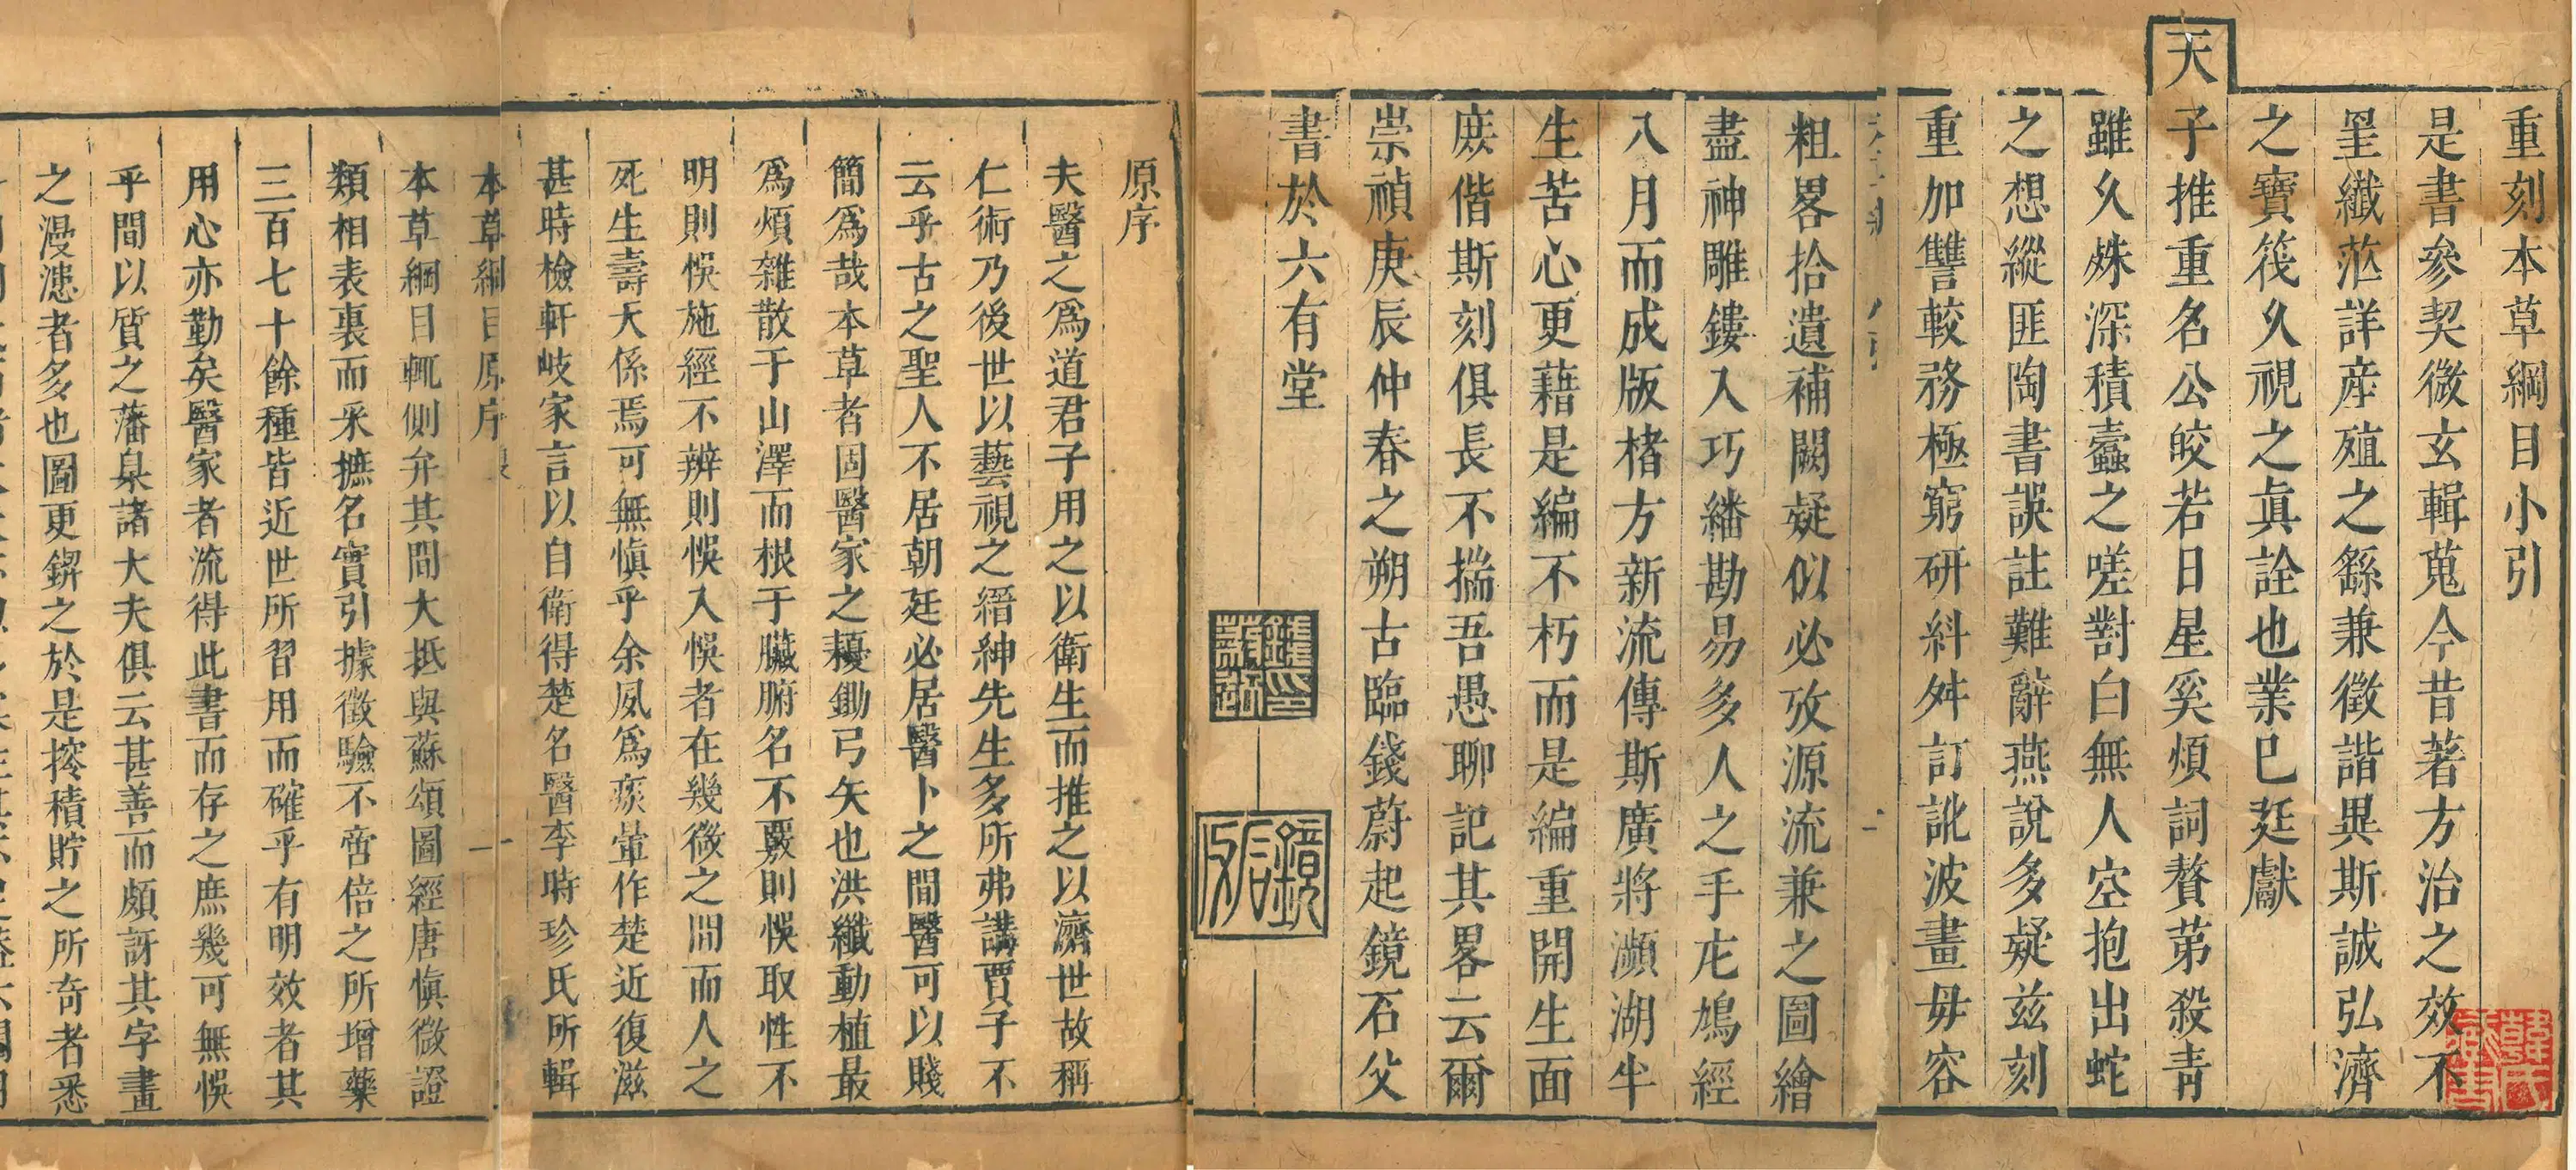 重刻本草綱目小引
是書參契微玄輯蒐今昔著方治之效不
罣纖茫詳産殖之繇兼徵諧異斯誠弘濟
之寶筏久視之眞詮也業已廷獻
天子推重名公皎若日星奚煩詞贅苐殺青
雖久姝深積蠹之嗟對白無人空抱出蛇
之想縱匪陶書誤註難辭燕說多疑兹刻
重加讐較務極窮研紏舛訂訛波畫毋容
粗畧拾遺補闕疑似必攷源流兼之圖繪
盡神雕鏤入巧繙勘易多人之手庀鳩經
八月而成版楮方新流傳斯廣將瀕湖半
生苦心更藉是編不朽而是編重開生面
庶偕斯刻俱長不揣吾愚聊記其畧云爾
崇禎庚辰仲春之朔古臨錢蔚起鏡石父
書於六有堂
原序
夫醫之爲道君子用之以衛生而推之以濟世故稱
仁術乃後世以藝視之縉紳先生多所弗講賈子不
云乎古之聖人不居朝廷必居醫卜之間醫可以賤
簡爲哉本草者固醫家之耰鋤弓矢也洪纖動植最
爲煩雜散于山澤而根于臟腑名不覈則悞取性不
明則悞施經不辨則悞入悞者在幾微之間而人之
死生壽夭係焉可無愼乎余夙爲痰暈作楚近復滋
甚時檢軒岐家言以自衛得楚名醫李時珍氏所輯
本草綱目原序
本草綱目輒側弁其間大抵與蘇頌圖經唐愼微證
類相表裏而采摭名實引據徵驗不啻倍之所增藥
三百七十餘種皆近世所習用而確乎有明效者其
用心亦勤矣醫家者流得此書而存之庶幾可無悞
乎間以質之藩臬諸大夫俱云甚善而頗訝其字畫
之漫漶者多也圖更鋟之於是搾積貯之所奇者悉